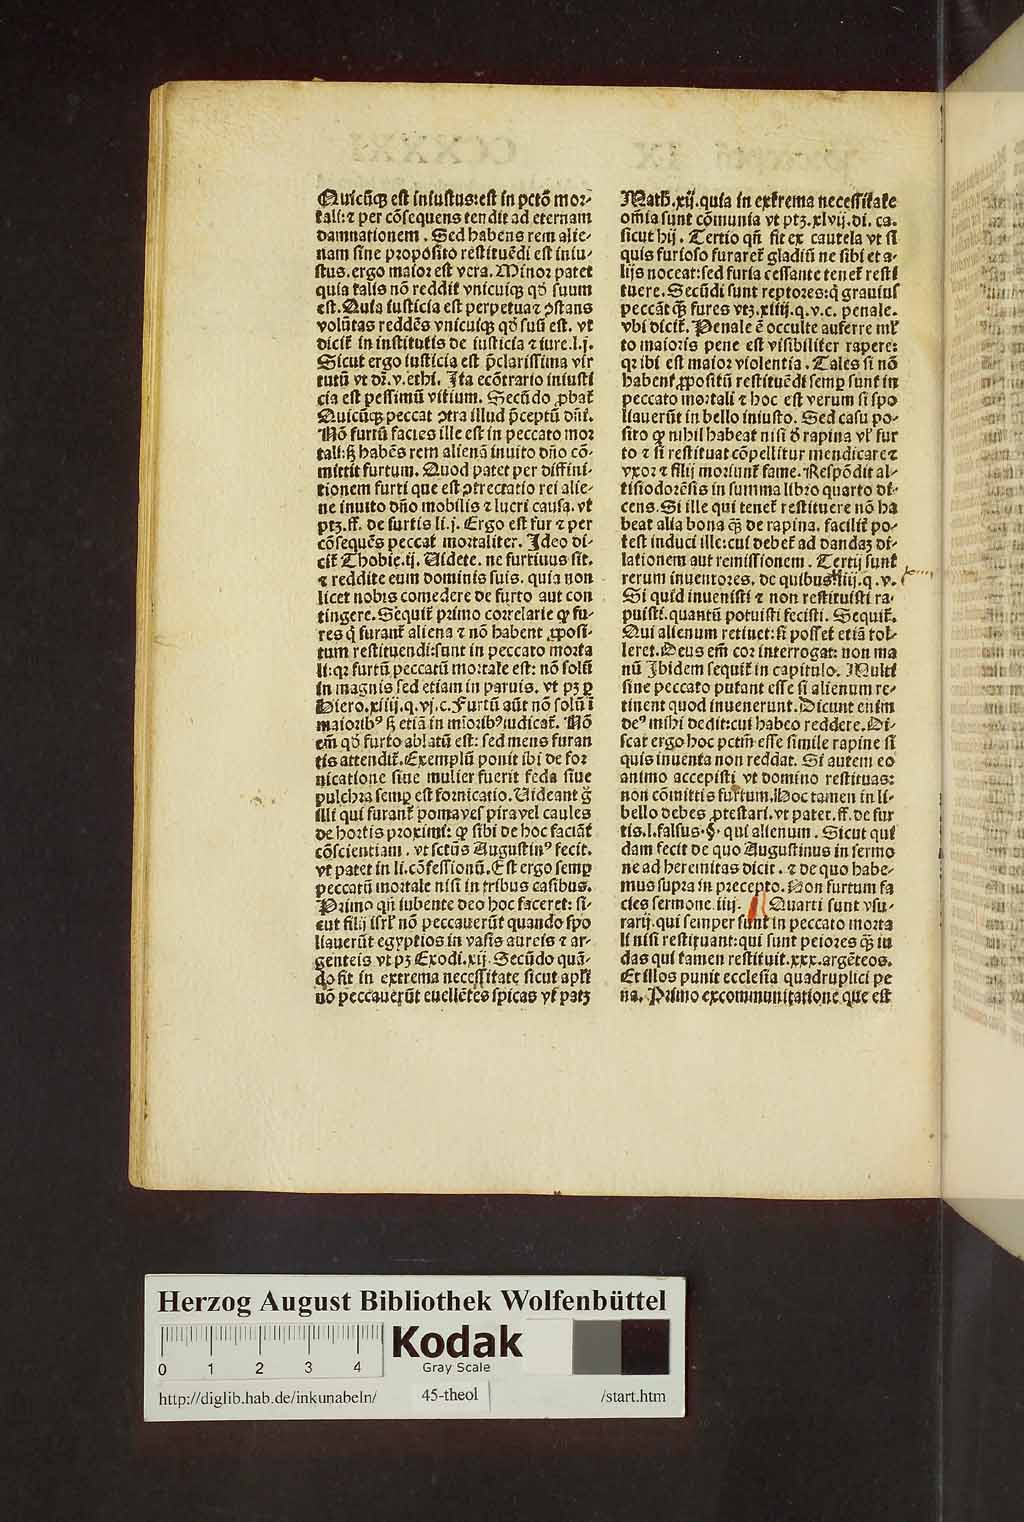 Quicūq; est iniustus:est in pctō mor⸗
tali:⁊ per cōsequens tendit ad eternam
damnationem. Sed habens rem alie⸗
nam sine proposito restituēdi est iniu⸗
stus.ergo maior est vera. Minor patet
quia talis nō reddit vnicuiq; qḋ suum
est. Quia iusticia est perpetua ⁊ ꝯstans
volūtas reddēs vnicuiq; qḋ suū est. vt
dicit̄ in institutis de iusticia ⁊ iure.l.j.
Sicut ergo iusticia est p̄clarissima vir
tutū vt dr̄.v.ethi. Ita ecōtrario iniusti
cia est pessimū vitium. Secūdo ꝓbat̄
Quicūq; peccat ꝯtra illud p̄ceptū dn̄i.
Nō furtū facies ille est in peccato mor
tali:ꝫ habēs rem alienā inuito dn̄o cō⸗
mittit furtum. Quod patet per diffini⸗
tionem furti que est ꝯtrectatio rei alie⸗
ne inuito dn̄o mobilis ⁊ lucri causa. vt
ptꝫ.ff. de furtis li.j. Ergo est fur ⁊ per
cōsequēs peccat mortaliter. Ideo di⸗
cit̄ Thobie.ij. Uidete. ne furtiuus sit.
⁊ reddite eum dominis suis. quia non
licet nobis comedere de furto aut con
tingere. Sequit̄ primo correlarie ꝙ fu⸗
res q̄ furant̄ aliena ⁊ nō habent ꝓposi⸗
tum restituendi:sunt in peccato morta
li:qꝛ furtū peccatū mortale est: nō solū
in magnis sed etiam in paruis. vt pꝫ ꝑ
Hiero.xiiij.q.vj.c.Furtū aūt nō solū ī
maiorib⁹ ꝫ etiā in mīorib⁹ iudicat̄. Nō
em̄ qḋ furto ablatū est: sed mens furan
tis attendit̄. Exemplū ponit ibi de for
nicatione siue mulier fuerit feda siue
pulchra semꝑ est fornicatio. Uideant g̊
illi qui furant̄ poma vel pira vel caules
de hortis proximi: ꝙ sibi de hoc faciāt
cōscientiam. vt sctūs Augustin⁹ fecit.
vt patet in li.cōfessionū. Est ergo semꝑ
peccatū mortale nisi in tribus casibus.
Primo qn̄ iubente deo hoc faceret: si⸗
cut filij isrl̄ nō peccauerūt quando spo
liauerūt egyptios in vasis aureis ⁊ ar⸗
genteis vt pꝫ Exodi.xij. Secūdo quā⸗
do fit in extrema necessitate sicut apl̄i
nō peccauerūt euellētes spicas vt patꝫ
Math̄.xij.quia in extrema necessitate
om̄ia sunt cōmunia vt ptꝫ.xlvij.di. ca.
sicut hij. Tertio qn̄ fit ex cautela vt si
quis furioso furaret̄ gladiū ne sibi et a⸗
lijs noceat:sed furia cessante tenet̄ resti
tuere. Secūdi sunt reptores:q̄ grauius
peccāt q̄ꝫ fures vtꝫ.xiiij.q.v.c. penale.
vbi dicit̄. Penale ē occulte auferre ml̄
to maioris pene est visibiliter rapere:
qꝛ ibi est maior violentia. Tales si nō
habent ꝓpositū restituēdi semꝑ sunt in
peccato mortali ⁊ hoc est verum si spo
liauerūt in bello iniusto. Sed casu po⸗
sito ꝙ nihil habeat nisi ḋ rapina vl̄ fur
to ⁊ si restituat cōpellitur mendicare ⁊
vxor ⁊ filij moriunt̄ fame. Respōdit al⸗
tisiodorēsis in summa libro quarto di⸗
cens. Si ille qui tenet̄ restituere nō ha
beat alia bona q̄ꝫ de rapina. facilit̄ po⸗
test induci ille:cui debet̄ ad dandaꝫ di⸗
lationem aut remissionem. Tertij sunt
rerum inuentores. de quibus xiiij.q.v.
Si quid inuenisti ⁊ non restituisti ra⸗
puisti.quantū potuisti fecisti. Sequit̄.
Qui alienum retinet:si posset etiā tol⸗
leret. Deus em̄ cor interrogat: non ma
nū Ibidem sequit̄ in capitulo. Multi
sine peccato putant esse si alienum re⸗
tinent quod inuenerunt. Dicunt enim
de⁹ mihi dedit:cui habeo reddere. Di⸗
scat ergo hoc pctm̄ esse simile rapine si
quis inuenta non reddat. Si autem eo
animo accepisti vt domino restituas:
non cōmittis furtum. Hoc tamen in li⸗
bello debes ꝓtestari. vt pater.ff. de fur
tis.l.falsus.§. qui alienum. Sicut qui
dam fecit de quo Augustinus in sermo
ne ad heremitas dicit. ⁊ de quo habe⸗
mus supra in precepto. Non furtum fa
cies sermone. iiij. Quarti sunt vsu⸗
rarij.qui semper sunt in peccato morta
li nisi restituant:qui sunt peiores q̄ꝫ iu
das qui tamen restituit.xxx.argēteos.
Et illos punit ecclesia quadruplici pe
na. Primo excommunicatione que est
Herzog August Bibliothek Wolfenbüttel
0 1 2 3 4
Kodak
Gray Scale
http://diglib.hab.de/inkunabeln/ 45-theol /start.htm